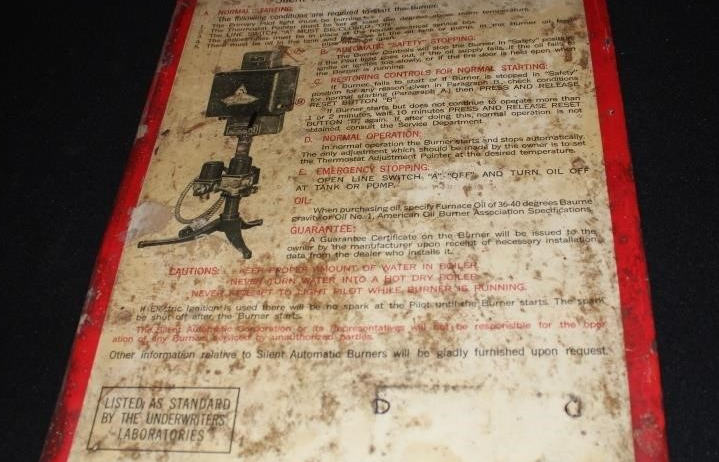 A. NORMAL STARTING:
The following conditions are required to Start the Burner.
Pilot light must be burning.
The Thermostat Pointer must be set above room temperature.
The LINE SWITCH "A" MUST BE CLOSED, "ON"
There must be oil in tank and
B. AUTOMATIC "SAFETY" STOPPING:
The Burner Controls will stop the Burner in "Safety" position
if the Pilot light goes out, if the oil supply fails, if the oil fails to
ignite or ignites too slowly, or if the fire door is held open when
the Burner is running.
C. RESTORING CONTROLS FOR NORMAL STARTING:
If Burner fails to start or if Burner is stopped in "Safety"
position for any reason given in Paragraph B, check conditions
for normal starting (Paragraph A) then PRESS AND RELEASE
RESET BUTTON "B".
If Burner starts but does not continue to operate more than
1 or 2 minutes, wait 10 minutes PRESS AND RELEASE RESET
BUTTON "B" again. If after doing this, normal operation is not
obtained, consult the Service Department.
D. NORMAL OPERATION:
In normal operation the Burner starts and stops automatically.
The only adjustment which should be made by the owner is to set
the Thermostat Adjustment Pointer at the desired temperature.
E. EMERGENCY STOPPING:
OPEN LINE SWITCH, "A" "OFF", AND TURN OIL OFF
AT TANK OR PUMP.
OIL:
When purchasing oil, specify Furnace Oil of 36-40 degrees Baume
gravity or Oil No. 1, American Oil Burner Association Specifications.
GUARANTEE:
A Guarantee Certificate on the Burner will be issued to the
owner by the manufacturer upon receipt of necessary installation
data from the dealer who installs it.
CAUTIONS: KEEP PROPER AMOUNT OF WATER IN BOILER.
NEVER TURN WATER INTO A HOT DRY BOILER.
NEVER ATTEMPT TO LIGHT PILOT WHILE BURNER IS RUNNING.
If Electric Ignition is used there will be no spark at the Pilot until the Burner starts. The spark
be shut off after the Burner starts.
The Silent Automatic Corporation or its representatives will not be responsible for the oper
ation of any Burner serviced by unauthorized parties.
Other information relative to Silent Automatic Burners will be gladly furnished upon request.
LISTED AS STANDARD
BY THE UNDERWRITERS'
LABORATORIES